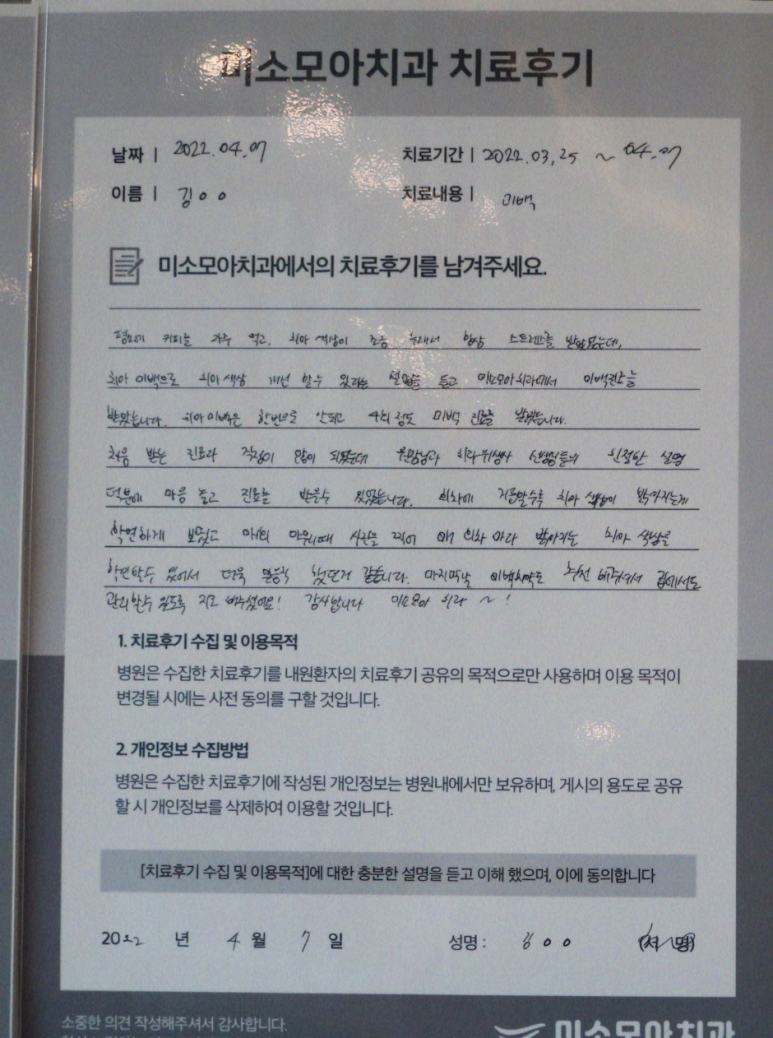 미소모아치과 치료후기
날짜 | 2022.04.07
치료기간 | 2022.03.25 ~ 04.07
이름 | 김○○
치료내용 | 미백
미소모아치과에서의 치료후기를 남겨주세요.
평소에 커피를 자주 먹고, 치아 색상이 조금 누래서 항상 스트레스를 받았었는데,
치아 미백으로 치아 색상 개선 할수 있다는 설명을 듣고 미소모아치과에서 미백진료를
받았습니다. 치아미백은 한번으로 안되고 4회정도 미백 진료를 받았습니다.
처음 받는 진료라 걱정이 많이 되었는데 원장님과 치과위생사 선생님들의 친절한 설명
덕분에 마음 놓고 진료를 받을수 있었습니다. 회차에 거듭할수록 치아 색상이 밝아지는게
확연하게 보였고 마무리때 사진을 찍어 매 회차 마다 밝아지는 치아 색상을
확인할수 있어서 더욱 만족 했던거 같습니다. 마지막날 미백치약도 추천 해주셔서 집에서도
관리할수 있도록 지도 해주셨어요! 감사합니다 미소모아 치과 ~!
1. 치료후기 수집 및 이용목적
병원은 수집한 치료후기를 내원환자의 치료후기 공유의 목적으로만 사용하며 이용 목적이
변경될 시에는 사전 동의를 구할 것입니다.
2. 개인정보 수집방법
병원은 수집한 치료후기에 작성된 개인정보는 병원내에서만 보유하며, 게시의 용도로 공유
할 시 개인정보를 삭제하여 이용할 것입니다.
[치료후기 수집 및 이용목적]에 대한 충분한 설명을 듣고 이해 했으며, 이에 동의합니다
2022 년 4 월 7 일 성명 : 김○○ (서명)
소중한 의견 작성해주셔서 감사합니다.
미소모아치과